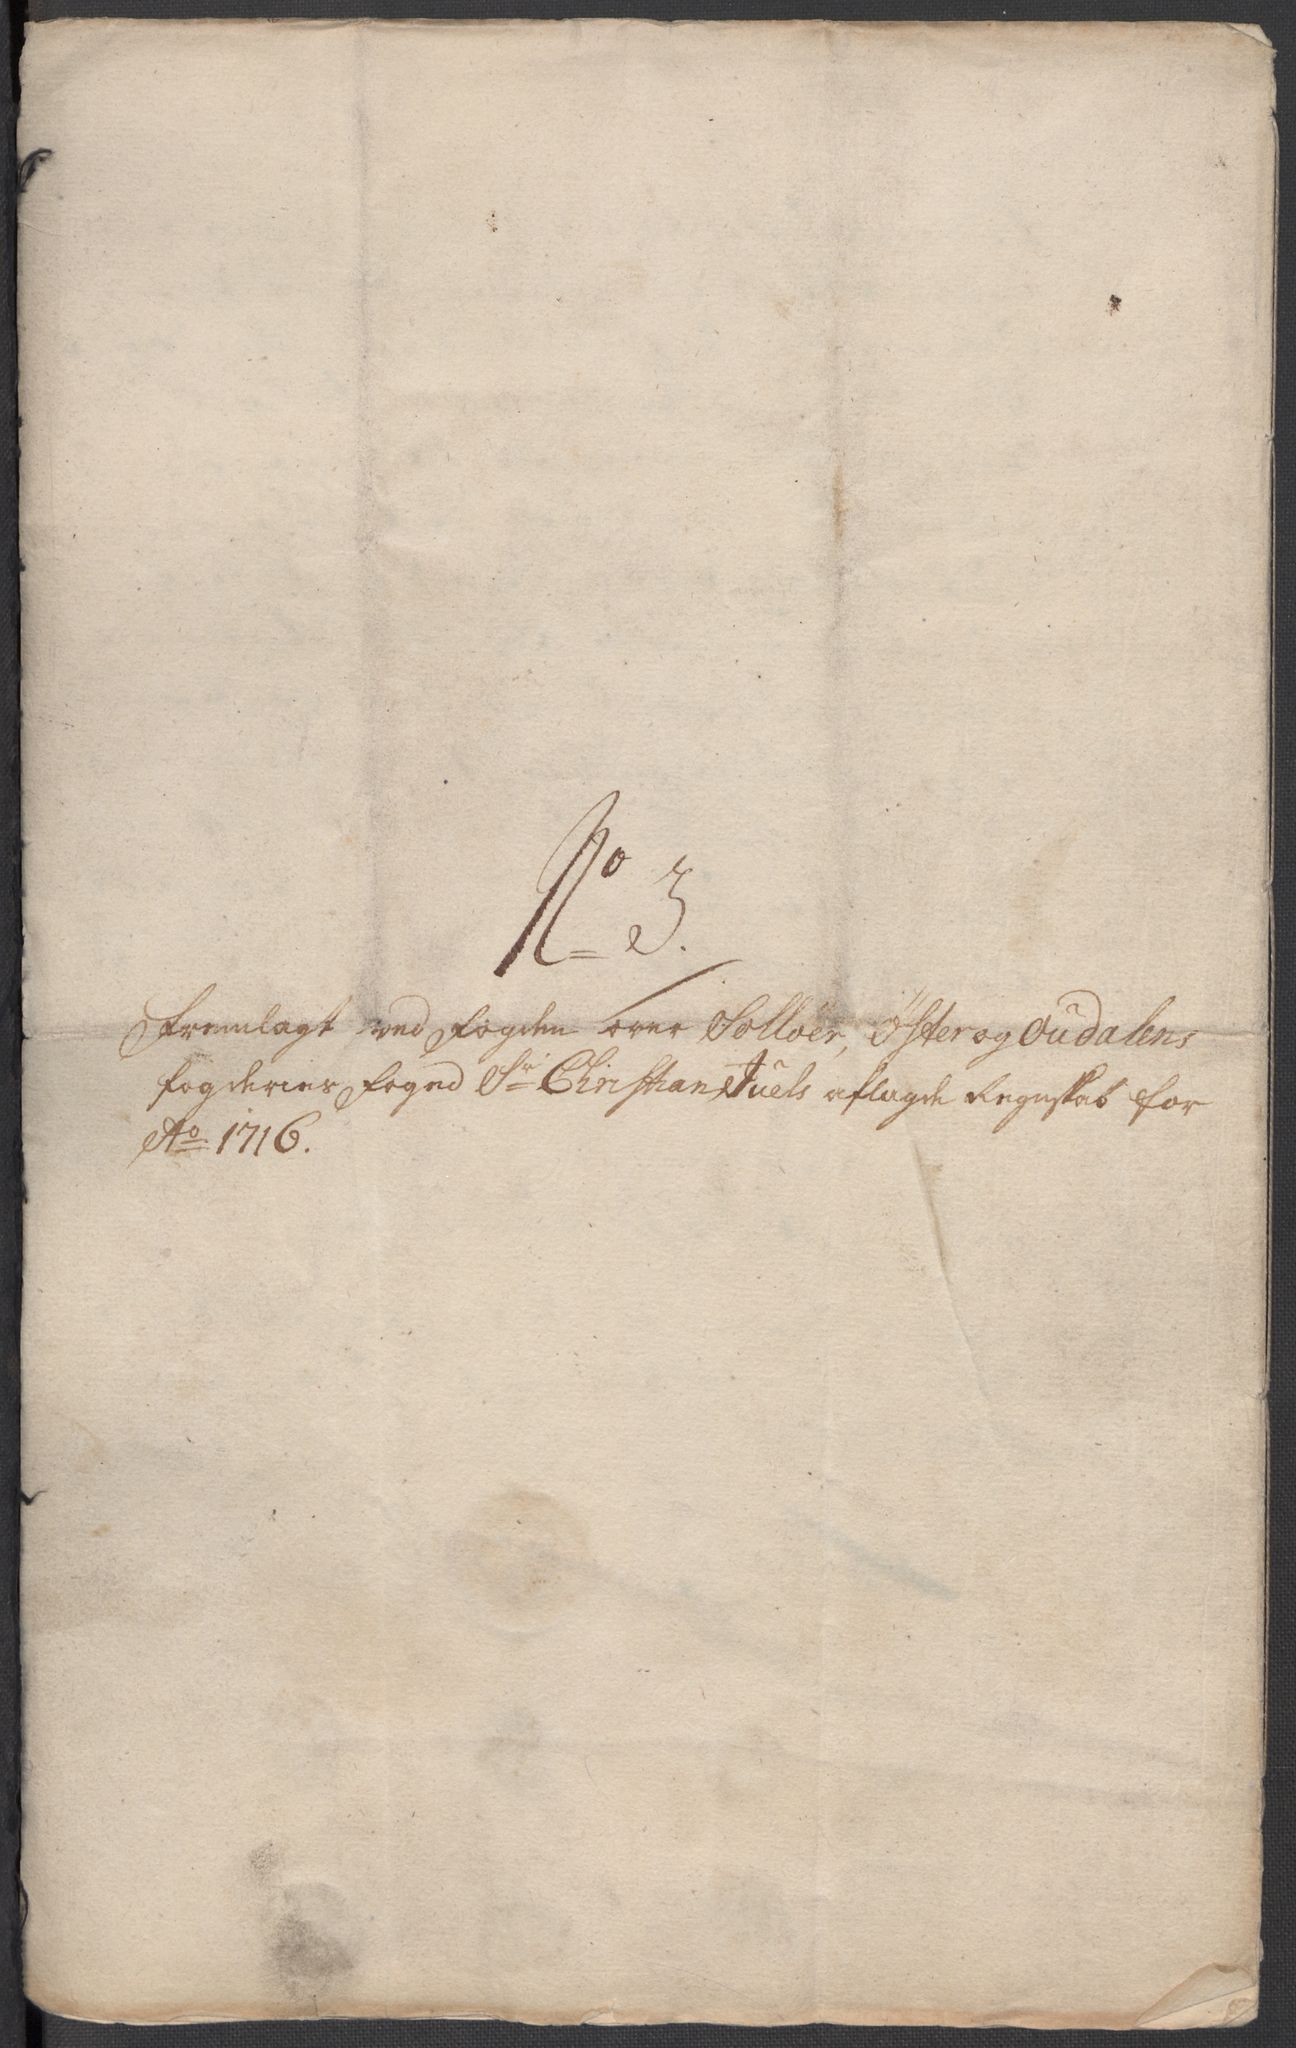 No 3.
Fremlagt ved Fogden over Solløer, Øster og Oudalens
fogderier foged Sr Christian Juels aflagde Regnskab for
Ao 1716.